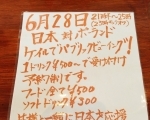 6月28日
日本 対 ポーランド
パブリックビューイング!
1ドリンク¥500~で受け付け
予約制です。
フード 全て¥500
ソフトドリンク¥300
皆様と一緒に日本を応援